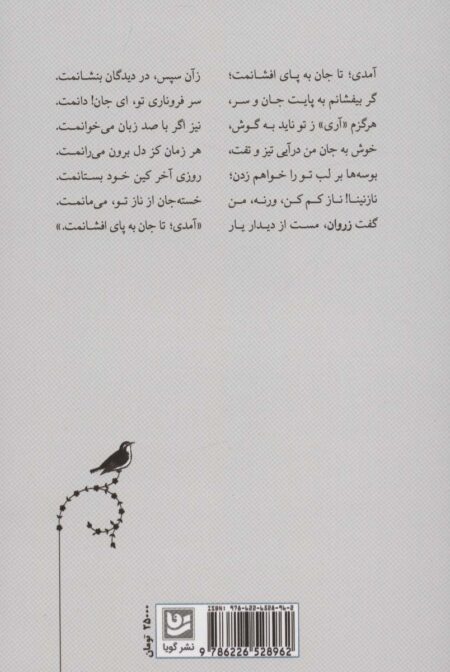 آمدی؛ تا جان به پای افشانمت؛ زآن سپس، در دیدگان بنشانمت.
گر بیفشانم به پایت جان و سر، سر فروناری تو، ای جان! دانمت.
هرگزم «آری» ز تو ناید به گوش، نیز اگر با صد زبان می‌خوانمت.
خوش به جان من درآیی تیز و تفت، هر زمان کز دل برون می‌رانمت.
بوسه‌ها بر لب تو را خواهم زدن؛ روزی آخر کین خود بستانمت.
نازنینا! ناز کم کن، ورنه، من خسته‌جان از ناز تو، می‌مانمت.
گفت زروان، مست از دیدار یار «آمدی؛ تا جان به پای افشانمت.»
۲۵۰۰۰ تومان
نشر گویا
ISBN: 978-622-6528-96-2
9 786226 528962